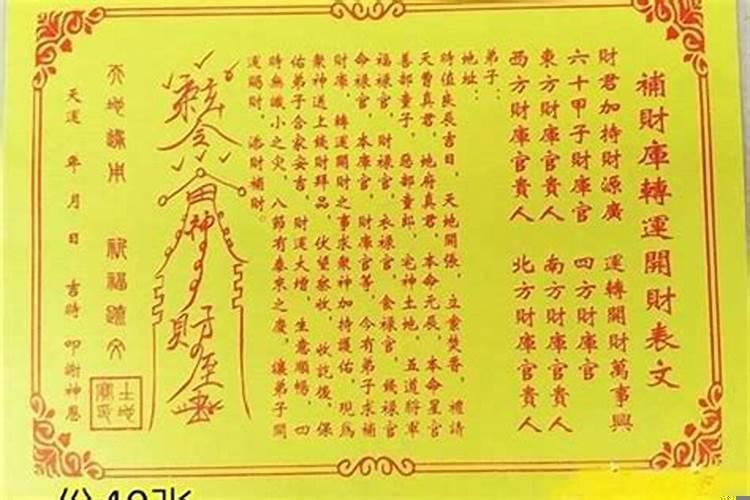 補財庫轉運開財表文
財君加持財源廣 運轉開財萬事興
六十甲子財庫官 四方財庫官
東方財庫官貴人 南方財庫官貴人
西方財庫官貴人 北方財庫官貴人
弟子：
地址：
時值良辰吉日，天地開張，立案焚香，禮請
天曹真君，地府真君，本命元辰，本命星官
善部童子，惡部童郎，宅神土地，五道將軍
福祿官，財祿官，衣祿官，食祿官，錢祿官
命祿官，本庫官，財庫官等，今有弟子求補
財庫，轉運開財之事求眾神加持護佑，現為
眾神送上錢財拜品，伏望察收，收訖後，保
佑弟子合家安吉，財運大增，生意順暢，四
時無纖小之災，八節有泰來之慶，讓弟子開
運賜財，添財補財。
神
財
天地議用 祈福疏文
天運 年 月 日 吉時 叩謝神恩
份40张